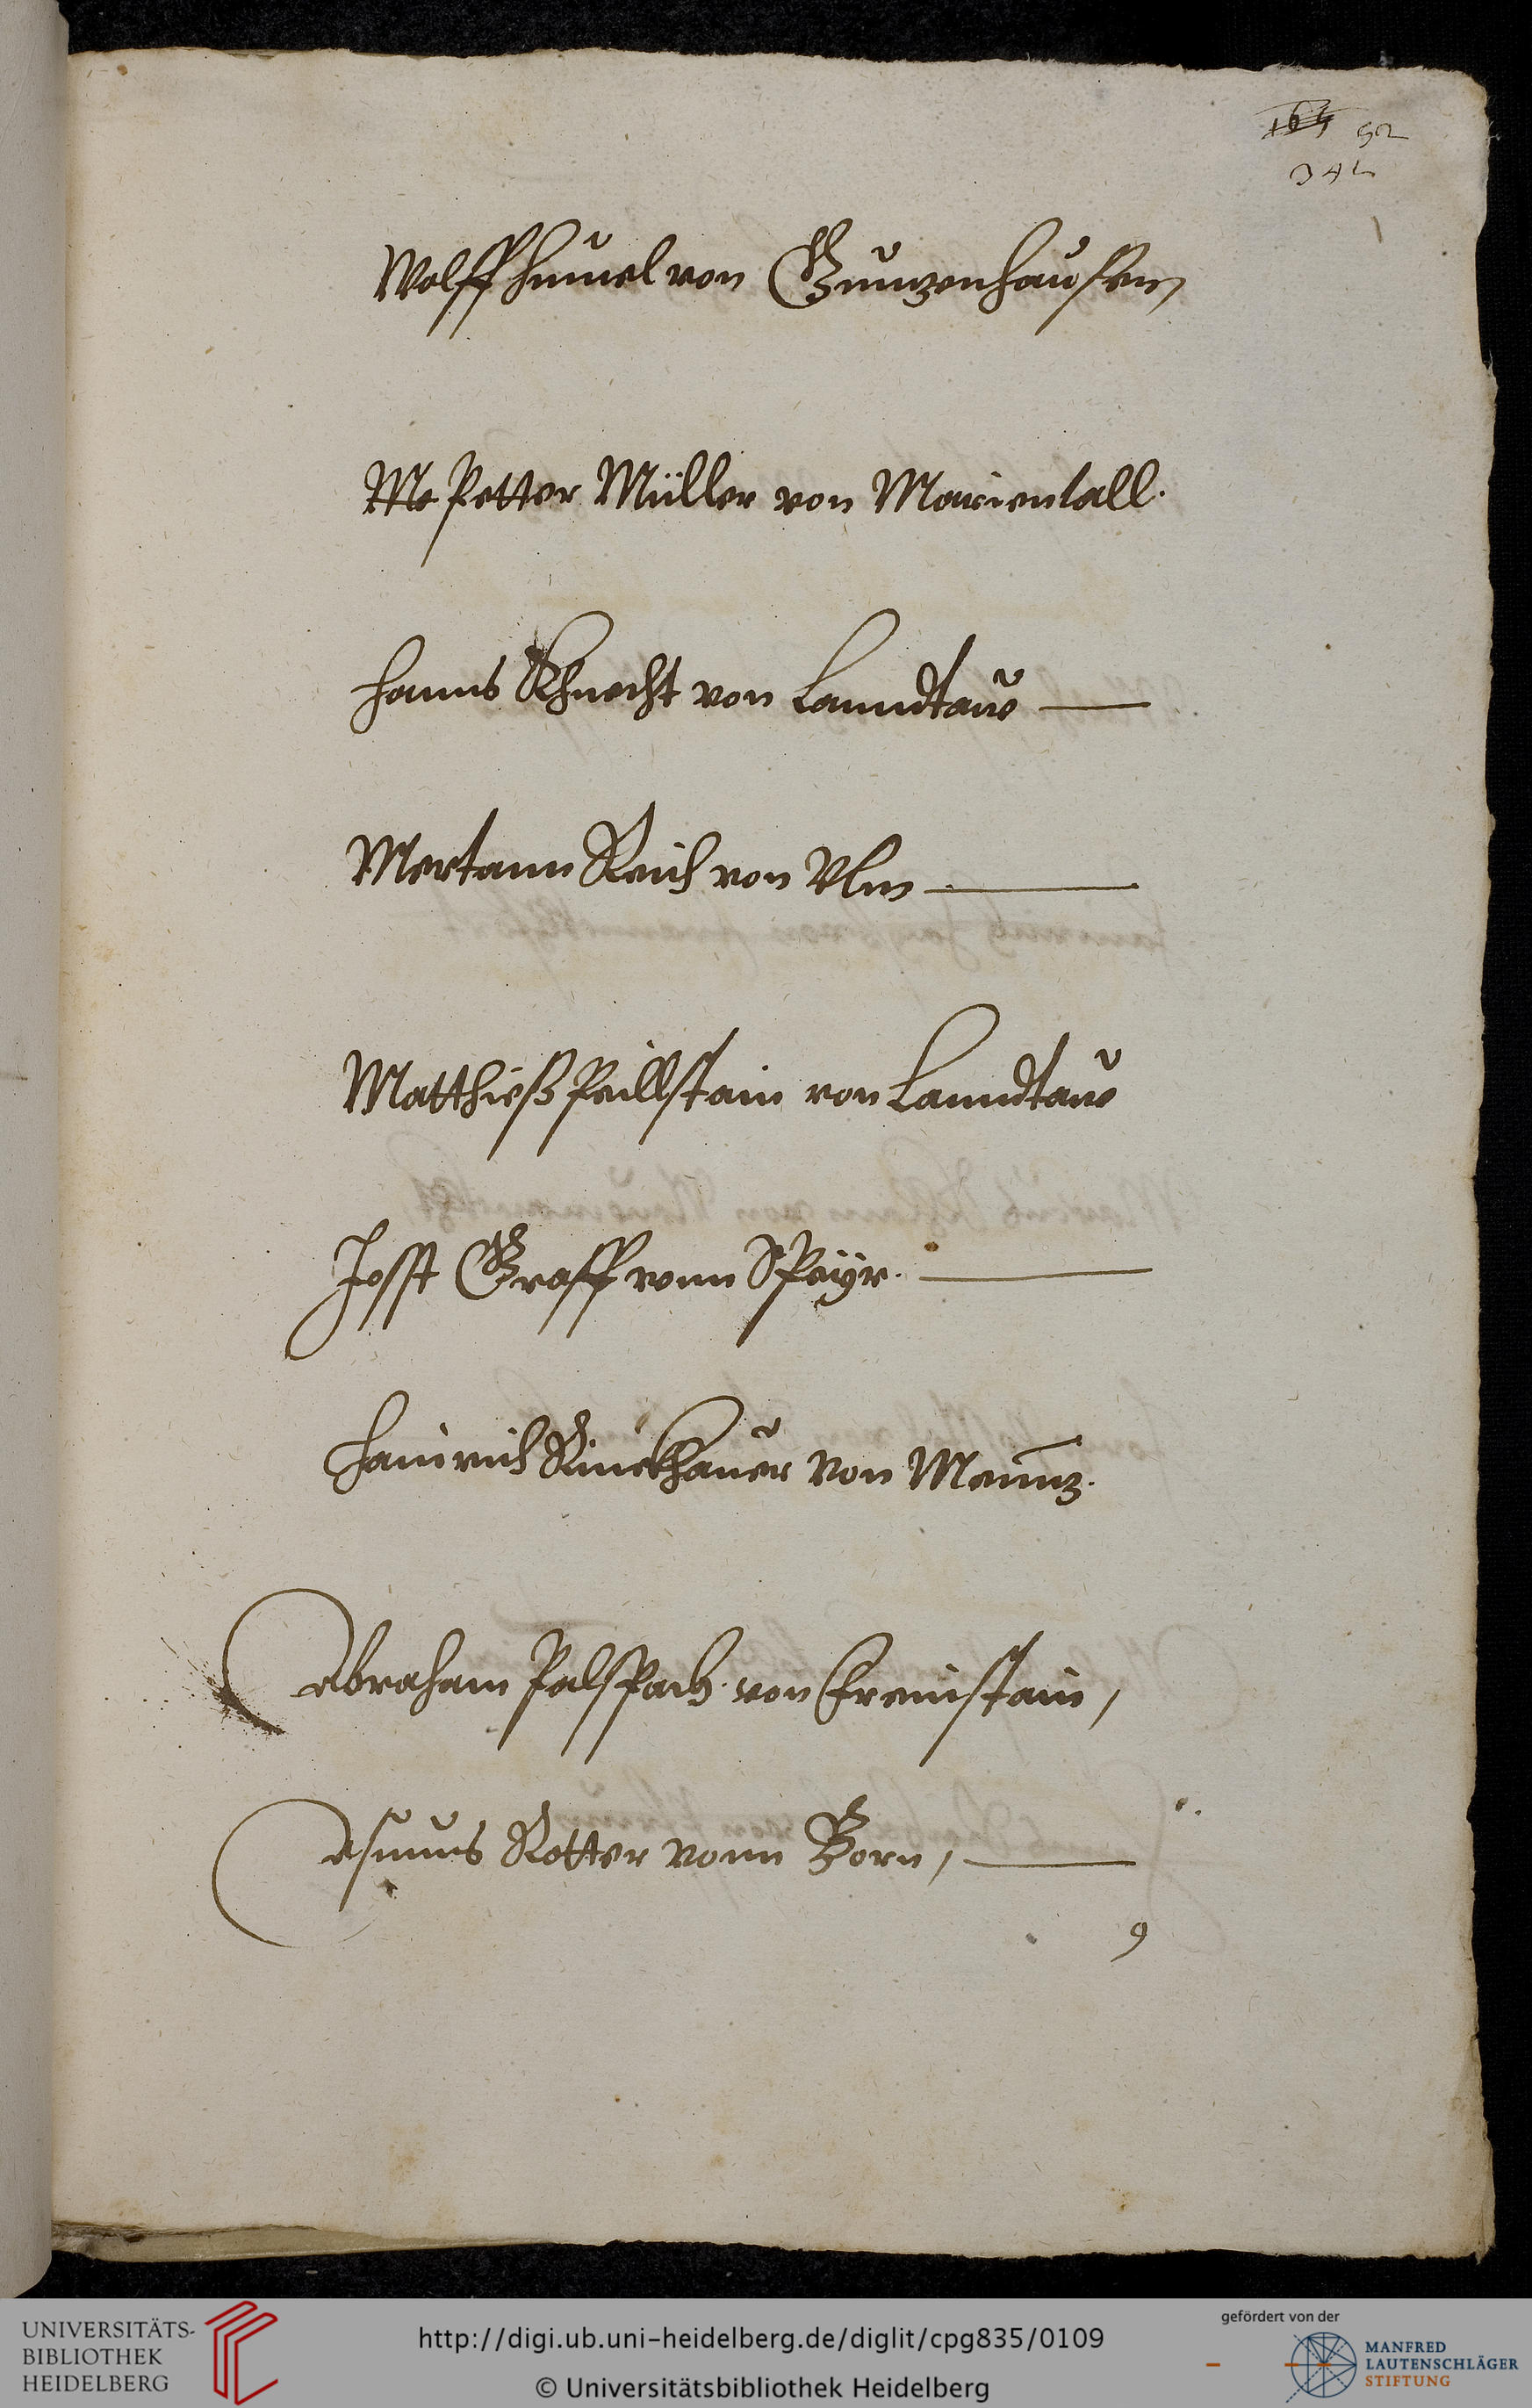 164 52
342
Wolff von Gunzenhausen
Me Petter Müller von Mariental
Hanns Khnecht von Lanndtaw
Mertann Reich von Vlm
Matthieß Peillstain von Lanndtaw
Josst Graff vonn Speÿr.
Hainrich von Mennz.
Abraham von Freinstain,
Asmus Rotter vonn Born,
9
UNIVERSITÄTS-
BIBLIOTHEK
HEIDELBERG
http://digi.ub.uni-heidelberg.de/diglit/cpg835/0109
© Universitätsbibliothek Heidelberg
gefördert von der
MANFRED
LAUTENSCHLÄGER
STIFTUNG